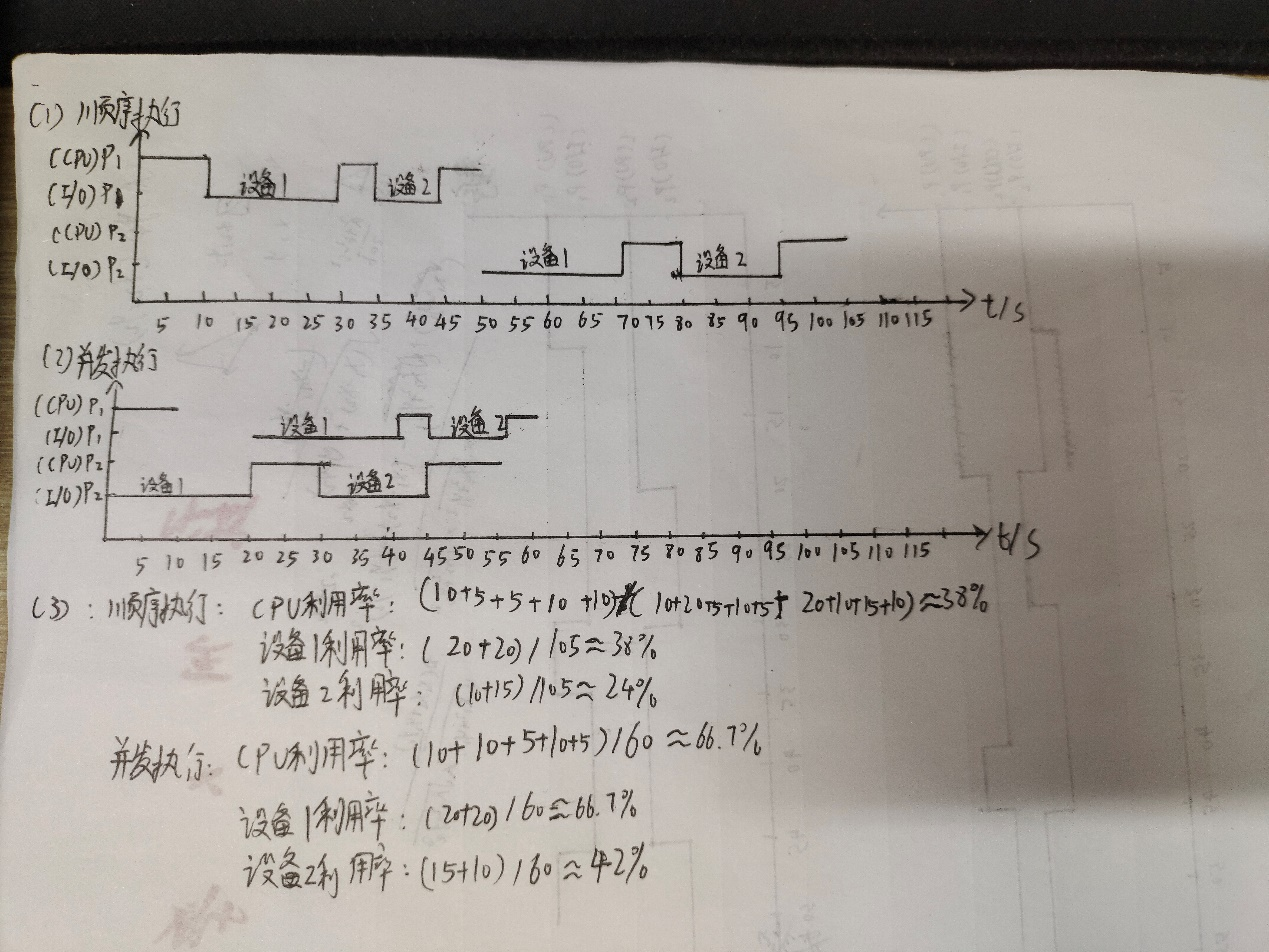 (1) 顺序执行
(CPU) P1
(I/O) P1
(CPU) P2
(I/O) P2
设备1
设备2
设备1
设备2
5 10 15 20 25 30 35 40 45 50 55 60 65 70 75 80 85 90 95 100 105 110 115
t/s
(2) 并发执行
(CPU) P1
(I/O) P1
(CPU) P2
(I/O) P2
设备1
设备2
设备1
设备2
5 10 15 20 25 30 35 40 45 50 55 60 65 70 75 80 85 90 95 100 105 110 115
t/s
(3): 顺序执行: CPU利用率: (10+5+5+10+10)/(10+20+5+10+5+20+10+15+10)≈38%
设备1利用率: (20+20)/105≈38%
设备2利用率: (10+15)/105≈24%
并发执行: CPU利用率: (10+10+5+10+5)/60≈66.7%
设备1利用率: (20+20)/60≈66.7%
设备2利用率: (15+10)/60≈42%